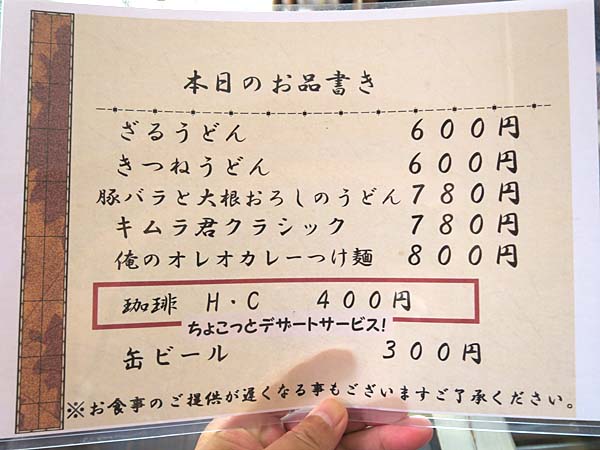 本日のお品書き
ざるうどん 600円
きつねうどん 600円
豚バラと大根おろしのうどん 780円
キムラ君クラシック 780円
俺のオレオカレーつけ麺 800円
珈琲 H・C 400円
ちょこっとデザートサービス!
缶ビール 300円
※お食事のご提供が遅くなる事もございますご了承ください。